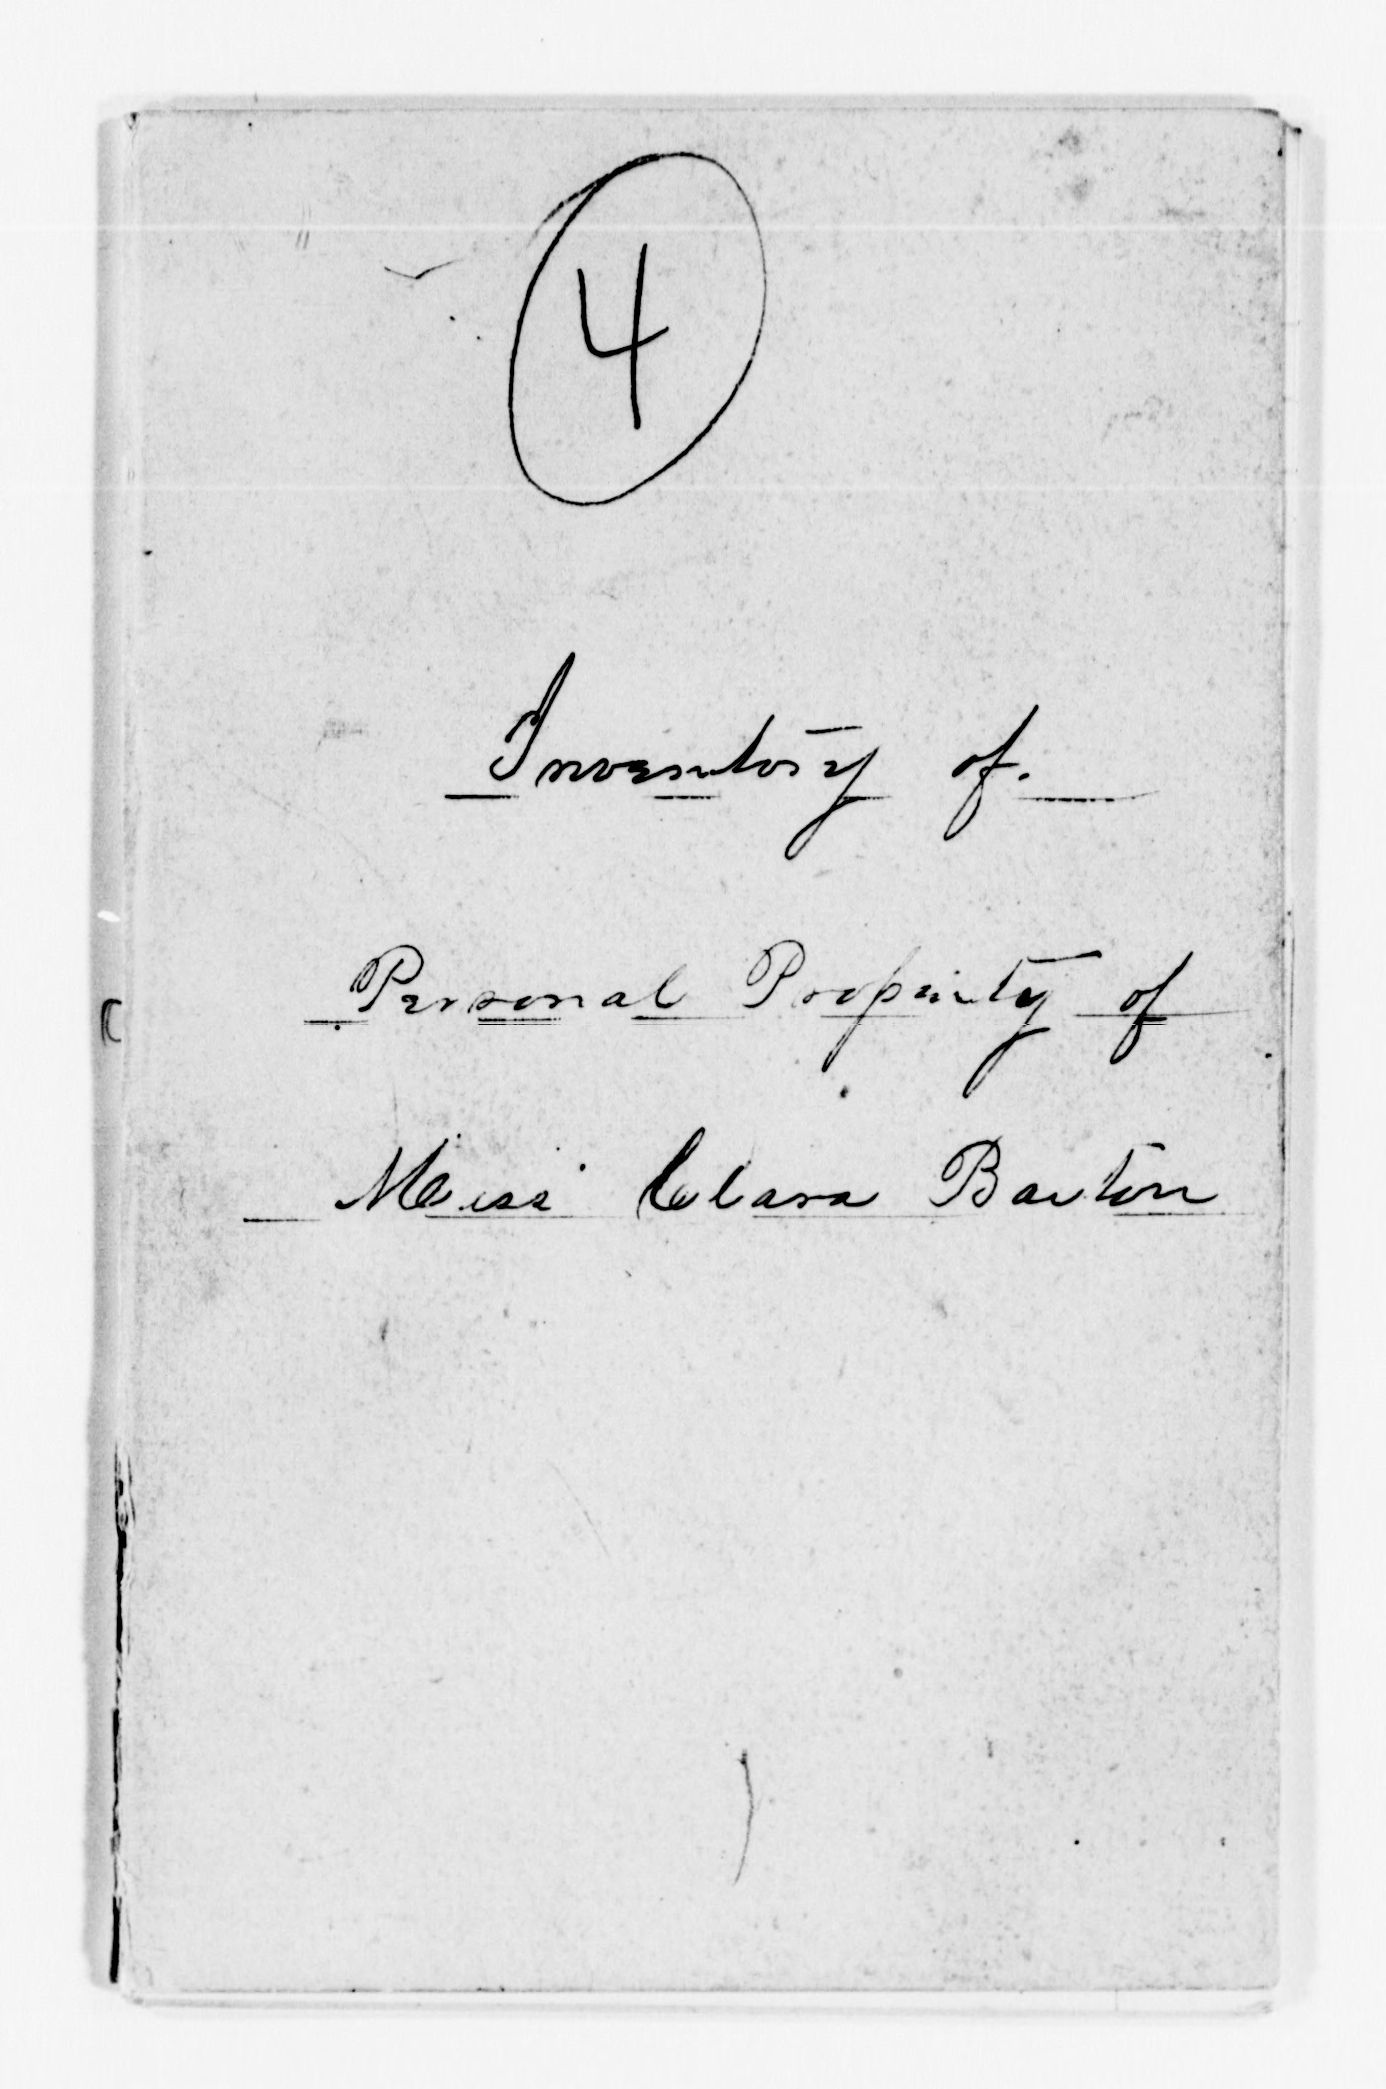 4
Inventory of.
Personal Property of
Miss Clara Barton